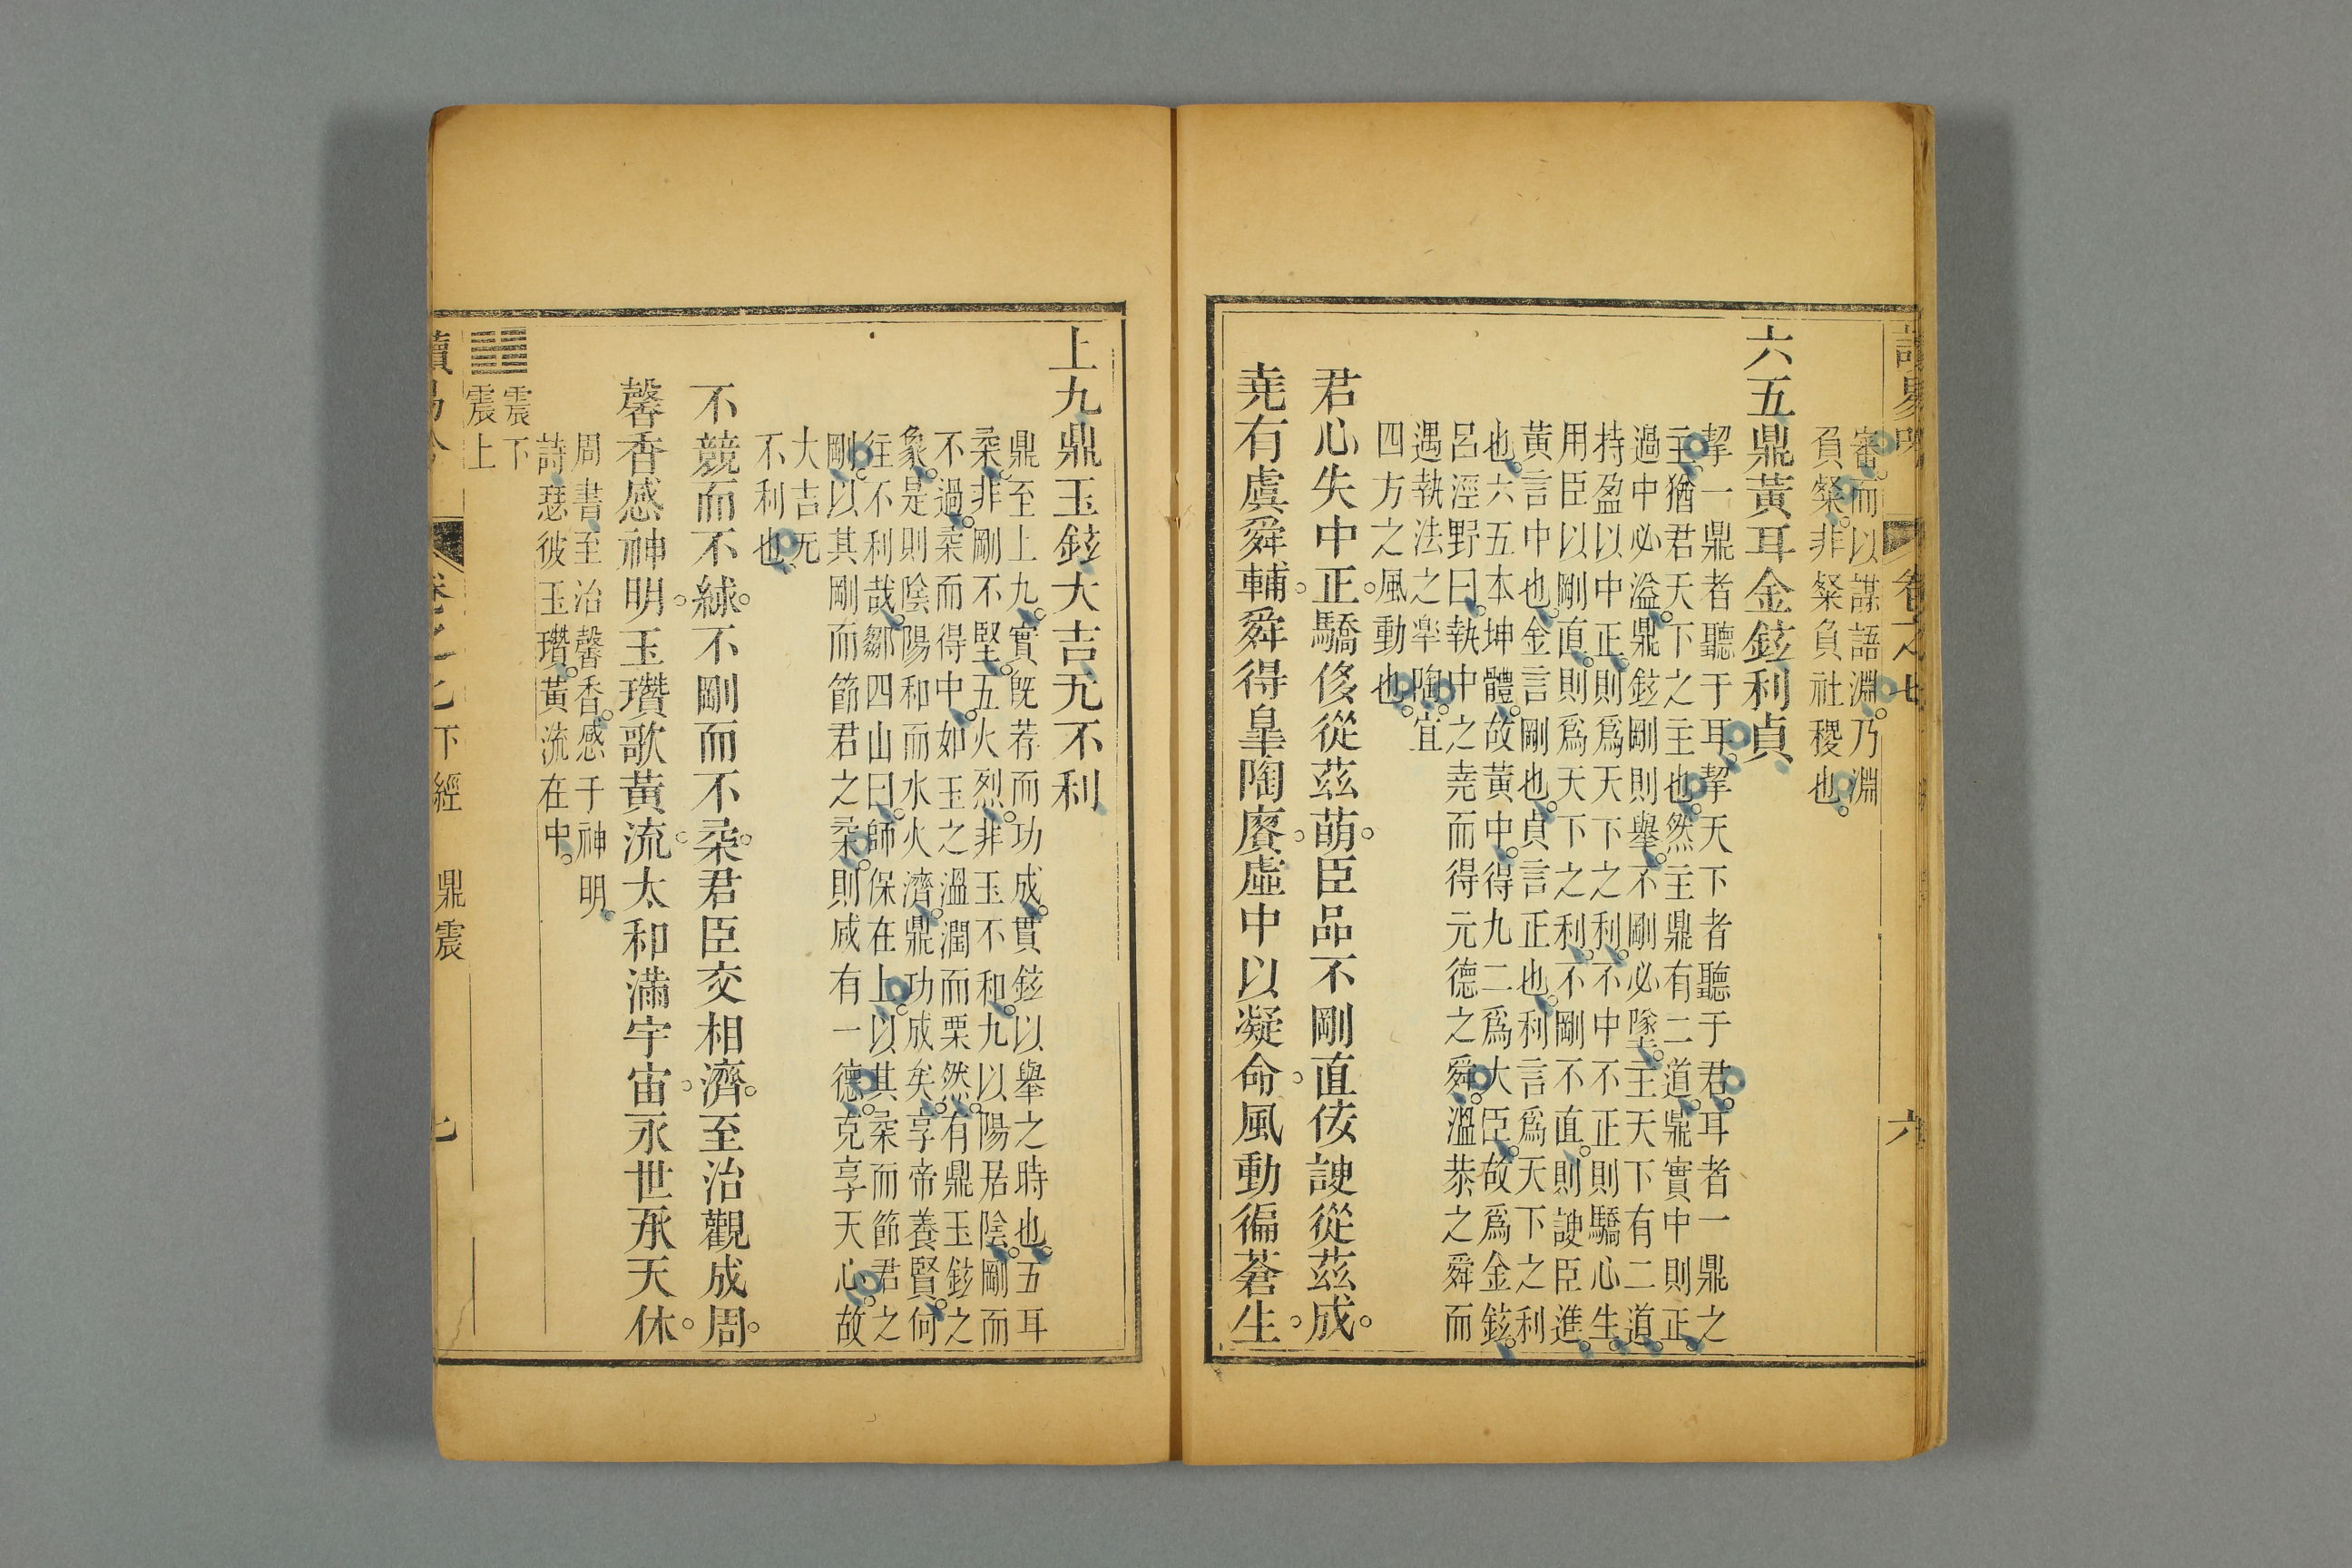 卷之七 六
審而以謀語淵乃淵
負粲非粲負社稷也
六五鼎黃耳金鉉利貞
挈一鼎者聽于耳挈天下者聽于君耳者一鼎之
主猶君天下之主也然主鼎有二道鼎實中則正
過中必溢鼎鉉剛則舉不剛必墜主天下有二道
持盈以中正則爲天下之利不中不正則驕心生
用臣以剛直則爲天下之利不剛不直則諛臣進
黃言中也金言剛也貞言正也利言爲天下之利
也六五本坤體故黃中得九二爲大臣故爲金鉉
呂涇野曰執中之堯而得元德之舜溫恭之舜而
遇執法之皐陶宜
四方之風動也
君心失中正驕侈從茲萌臣品不剛直佞諛從茲成
堯有虞舜輔舜得皐陶賡虛中以凝命風動徧蒼生
上九鼎玉鉉大吉无不利
鼎至上九實旣荐而功成貫鉉以舉之時也五耳
柔非剛不堅五火烈非玉不和九以陽居陰剛而
不過柔而得中如玉之溫潤而栗然有鼎玉鉉之
象是則陰陽和而水火濟鼎功成矣享帝養賢何
往不利哉鄒四山曰師保在上以其柔而節君之
剛以其剛而節君之柔則咸有一德克享天心故
大吉无
不利也
不競而不絿不剛而不柔君臣交相濟至治觀成周
馨香感神明玉瓚歌黃流太和滿宇宙永世承天休
周書至治馨香感于神明
詩瑟彼玉瓚黃流在中
震下
震上
讀易 卷之七 下經 鼎震 七